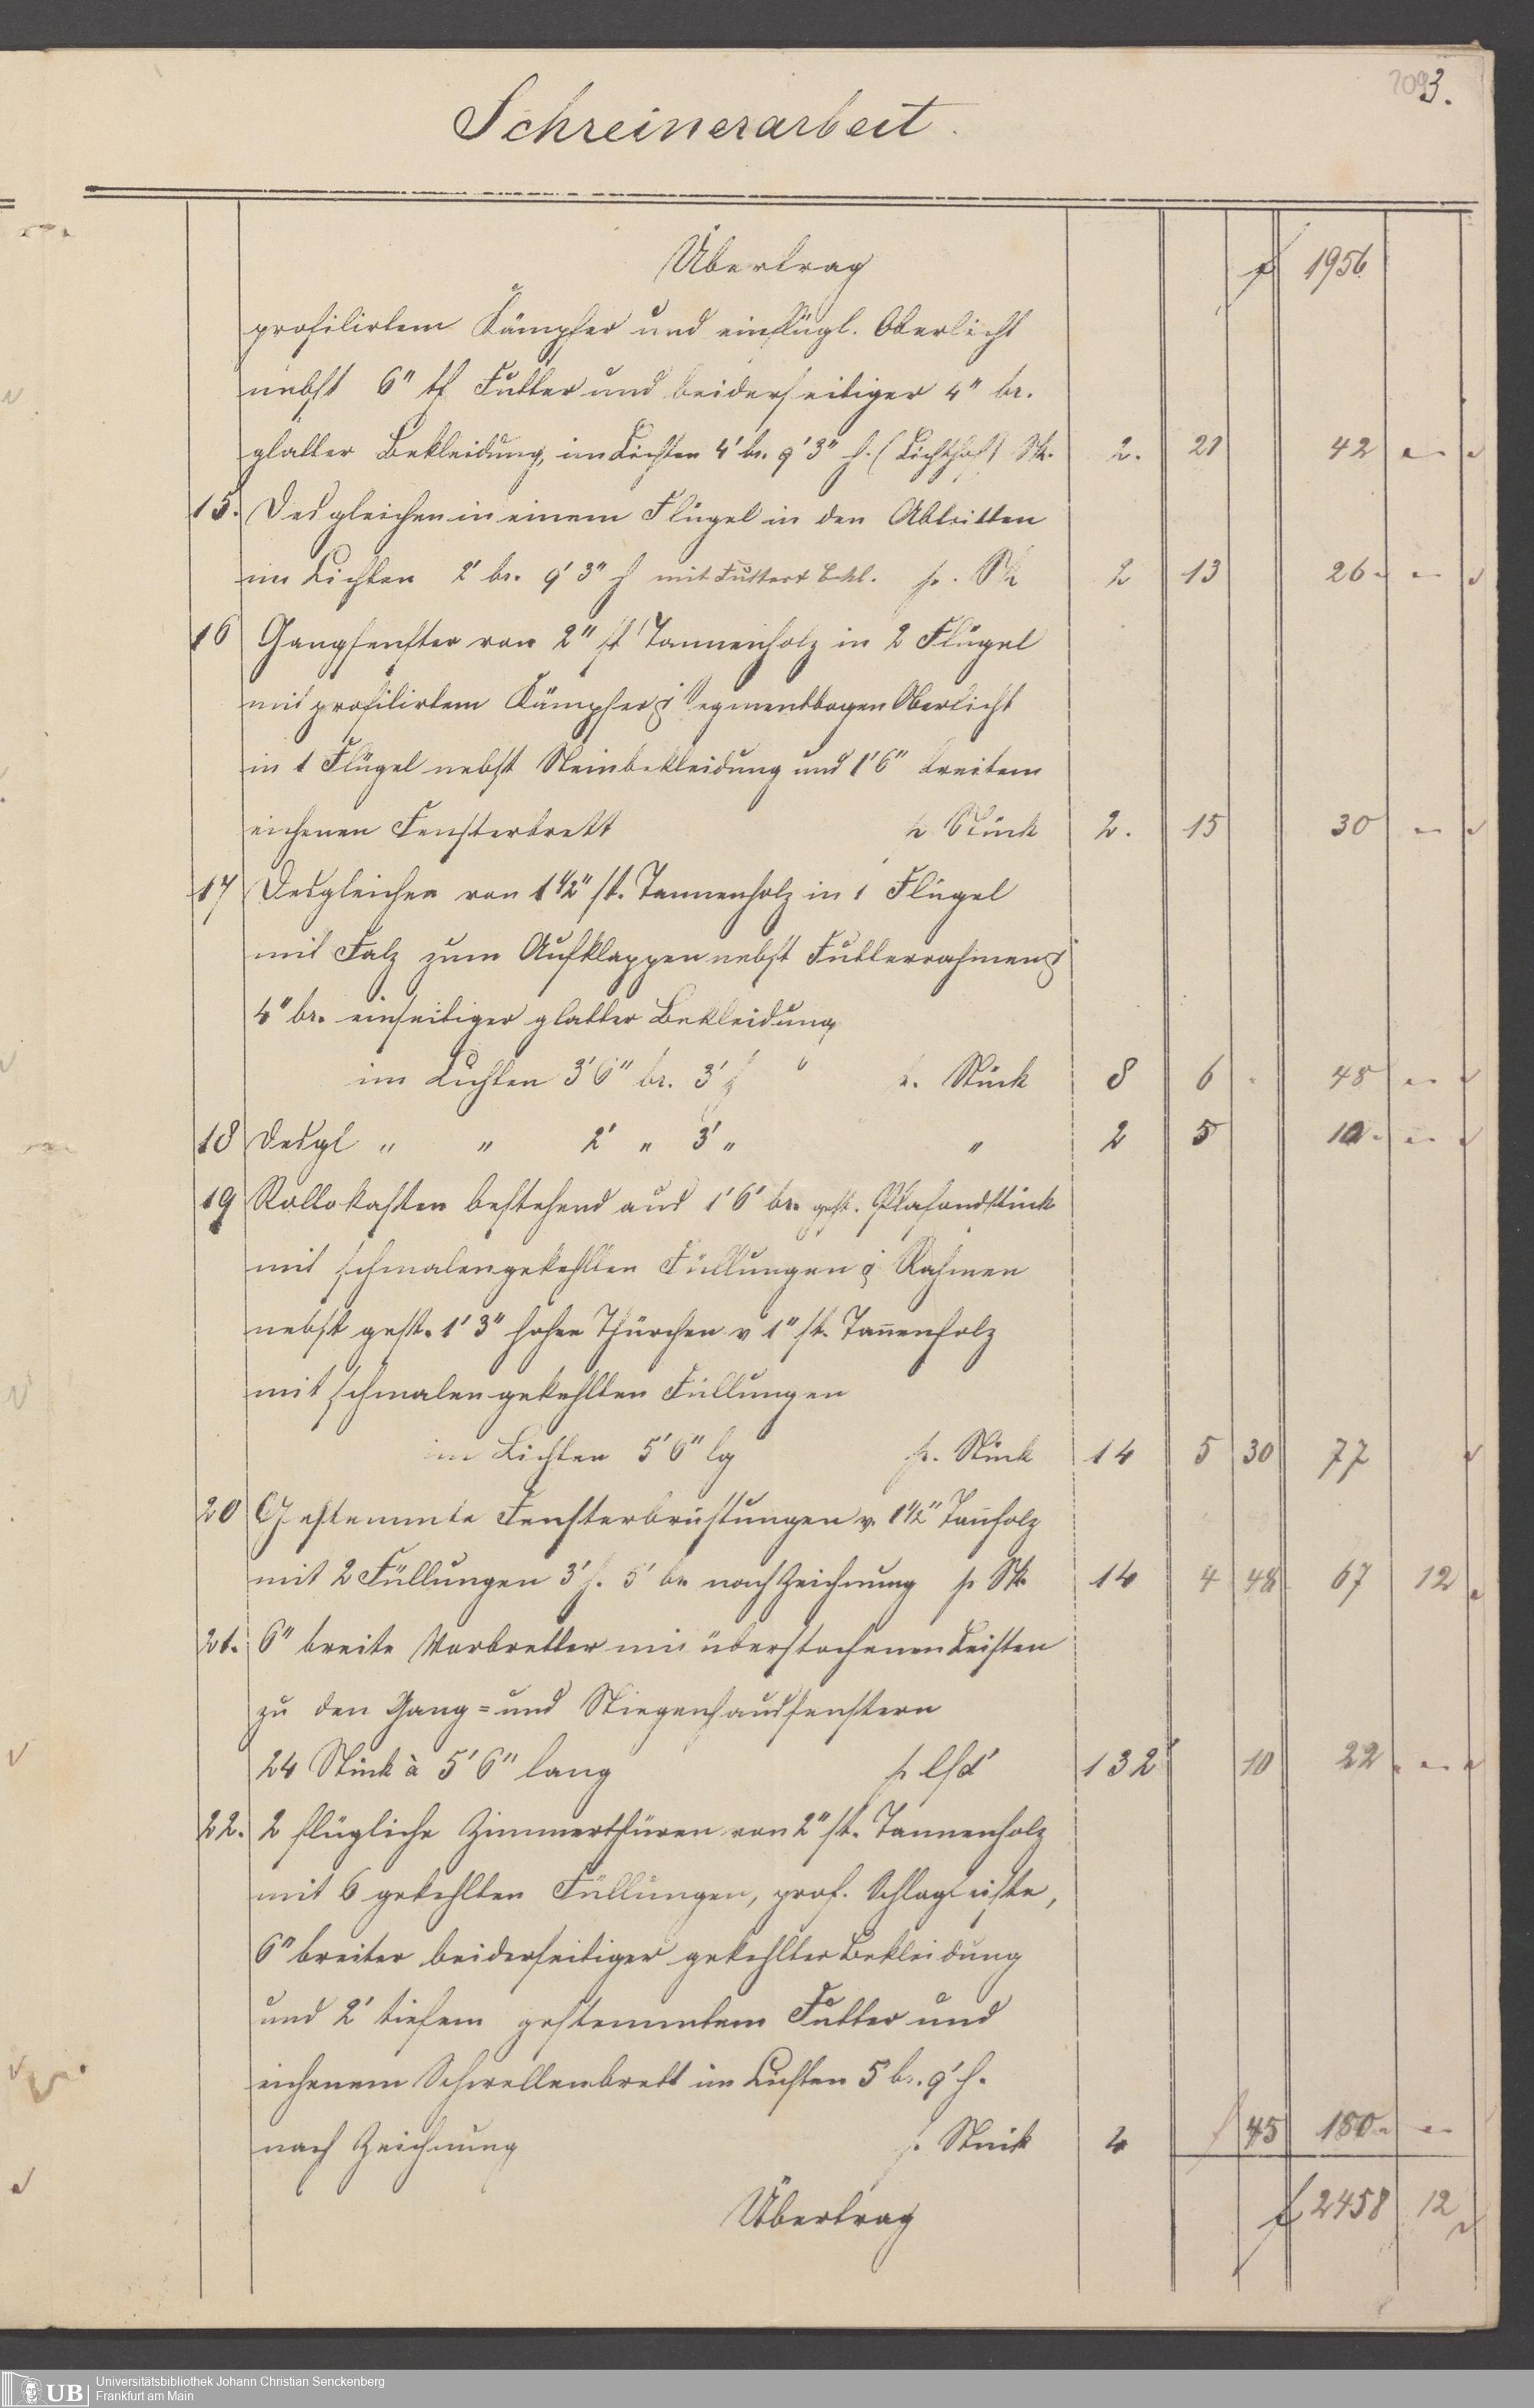 2093.
Schreinerarbeit.
Übertrag f 1956
profilirtem Kämpfer und einflügl. Oberlicht
nebst 6" tf Futter und beiderseitiger 4" br.
glatter Bekleidung, im Lichten 4' br. 9' 3" h. (Lichthof) Stk. 2. 21 42 "
15. Desgleichen in einem Flügel in den Abtritten
im Lichten 2' br. 9' 3" h mit Futter & Bekl. p. Stk 2 13 26 "
16 Gangfenster von 2" st Tannenholz in 2 Flügel
mit profilirtem Kämpfer & Segmentbogen Oberlicht
in 1 Flügel nebst Steinbekleidung und 1' 6" breitem
eichenen Fensterbrett p. Stück 2. 15 30 "
17 Desgleichen von 1 1/2" st. Tannenholz in 1 Flügel
mit Falz zum Aufklappen nebst Futterrahmen &
4" br. einseitiger glatter Bekleidung
im Lichten 3' 6" br. 3' h " p. Stück 8 6 48 "
18 Desgl " " 2' " 3' " " 2 5 10 "
19 Rollokasten bestehend aus 1' 6' br. gest. Plafondstück
mit schmalen gekehlten Füllungen & Rahmen
nebst gest. 1' 3" hohen Thürchen v 1" st. Tannenholz
mit schmalen gekehlten Füllungen
im Lichten 5' 6" lg p. Stück 14 5 30 77
20 Gestemmte Fensterbrüstungen v. 1 1/2" Tannholz
mit 2 Füllungen 3' h. 5' br. nach Zeichnung p Stk 14 4 48 67 12
21. 6" breite Vorbretter mit überstochenen Leisten
zu den Gang= und Stiegenhausfenstern
24 Stück à 5' 6" lang p lfd' 132' 10 22 "
22. 2 flügliche Zimmerthüren von 2" st. Tannenholz
mit 6 gekehlten Füllungen, prof. Schlagleiste,
6" breiter beiderseitiger gekehlter Bekleidung
und 2' tiefem gestemmtem Futter und
eichenem Schwellenbrett im Lichten 5' br. 9' h.
nach Zeichnung p. Stück 4 f 45 180 "
Übertrag f 2458 12
UB
Universitätsbibliothek Johann Christian Senckenberg
Frankfurt am Main